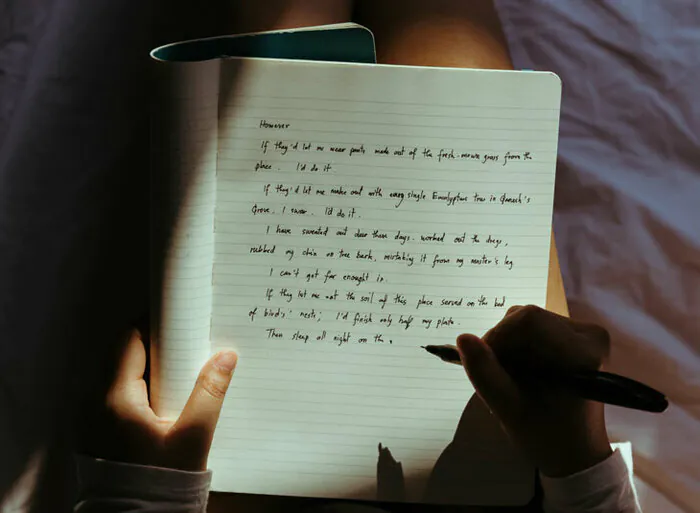 However
If they'd let me wear pants made out of the fresh grass from the
place. I'd do it.
If they'd let me make out with every single Eucalyptus tree in
Grove. I swear. I'd do it.
I have sweated out over these days. worked out the dregs,
rubbed my chin on tree bark, mistaking it from my master's leg
I can't get far enought in.
If they let me eat the soil of this place served on the bed
of birds' nests; I'd finish only half my plate.
Then sleep all night on the